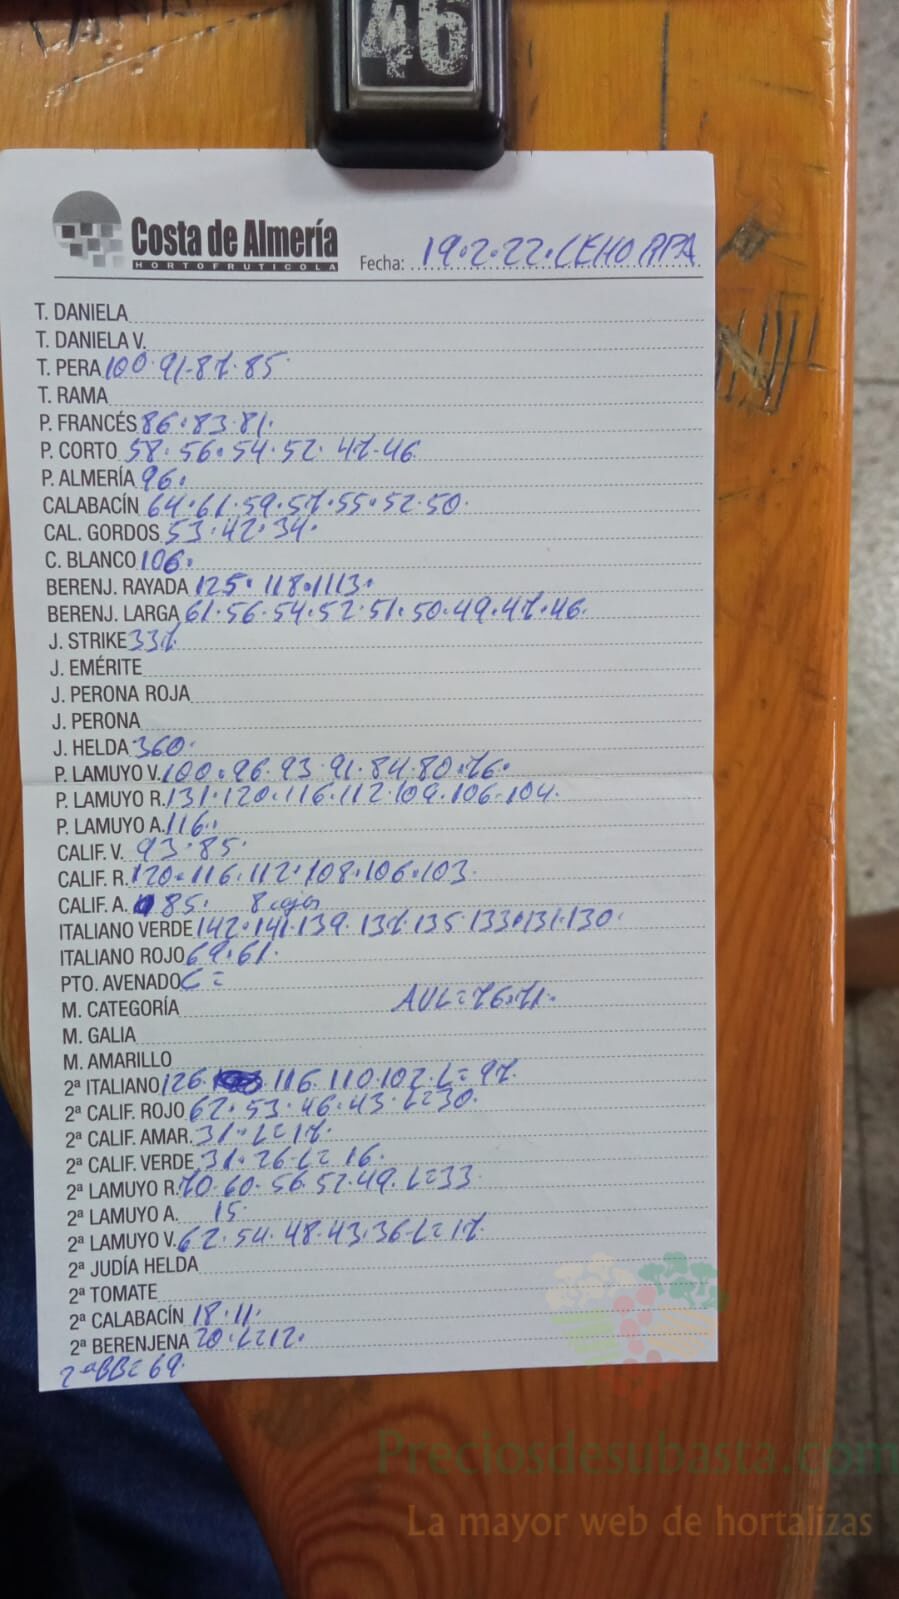 46
Costa de Almería
HORTOFRUTICOLA
Fecha: 19.2.22.
T. DANIELA
T. DANIELA V.
T. PERA 100.91-87.85
T. RAMA
P. FRANCÉS 86.83.81.
P. CORTO 58.56.54.52.47-46
P. ALMERÍA 96.
CALABACÍN 64.61.59.57.55.52.50.
CAL. GORDOS 53.42.34.
C. BLANCO 106.
BERENJ. RAYADA 125. 118.1113.
BERENJ. LARGA 61.56.54.52.51.50.49.47.46.
J. STRIKE 337.
J. EMÉRITE
J. PERONA ROJA
J. PERONA
J. HELDA 360.
P. LAMUYO V. 100.96.93.91.84.80.76.
P. LAMUYO R. 131.120.116.112.109.106-104.
P. LAMUYO A. 116.
CALIF. V. 93.85.
CALIF. R. 120.116.112.108.106.103.
CALIF. A. 85. 8 cajas
ITALIANO VERDE 142.141.139.137.135.133.131.130.
ITALIANO ROJO 69.61.
PTO. AVENADO C=
M. CATEGORÍA AVL=76.71.
M. GALIA
M. AMARILLO
2ª ITALIANO 126. 116.110.102.L=97.
2ª CALIF. ROJO 62.53.46.43.L=30.
2ª CALIF. AMAR. 31.L=17.
2ª CALIF. VERDE 31.26-L=16.
2ª LAMUYO R. 70.60.56.52.49.L=33
2ª LAMUYO A. 15.
2ª LAMUYO V. 62.54.48.43.36-L=17.
2ª JUDÍA HELDA
2ª TOMATE
2ª CALABACÍN 18.11.
2ª BERENJENA 20.L=12.
2ªBB=69.
Preciosdesubasta.com
La mayor web de hortalizas